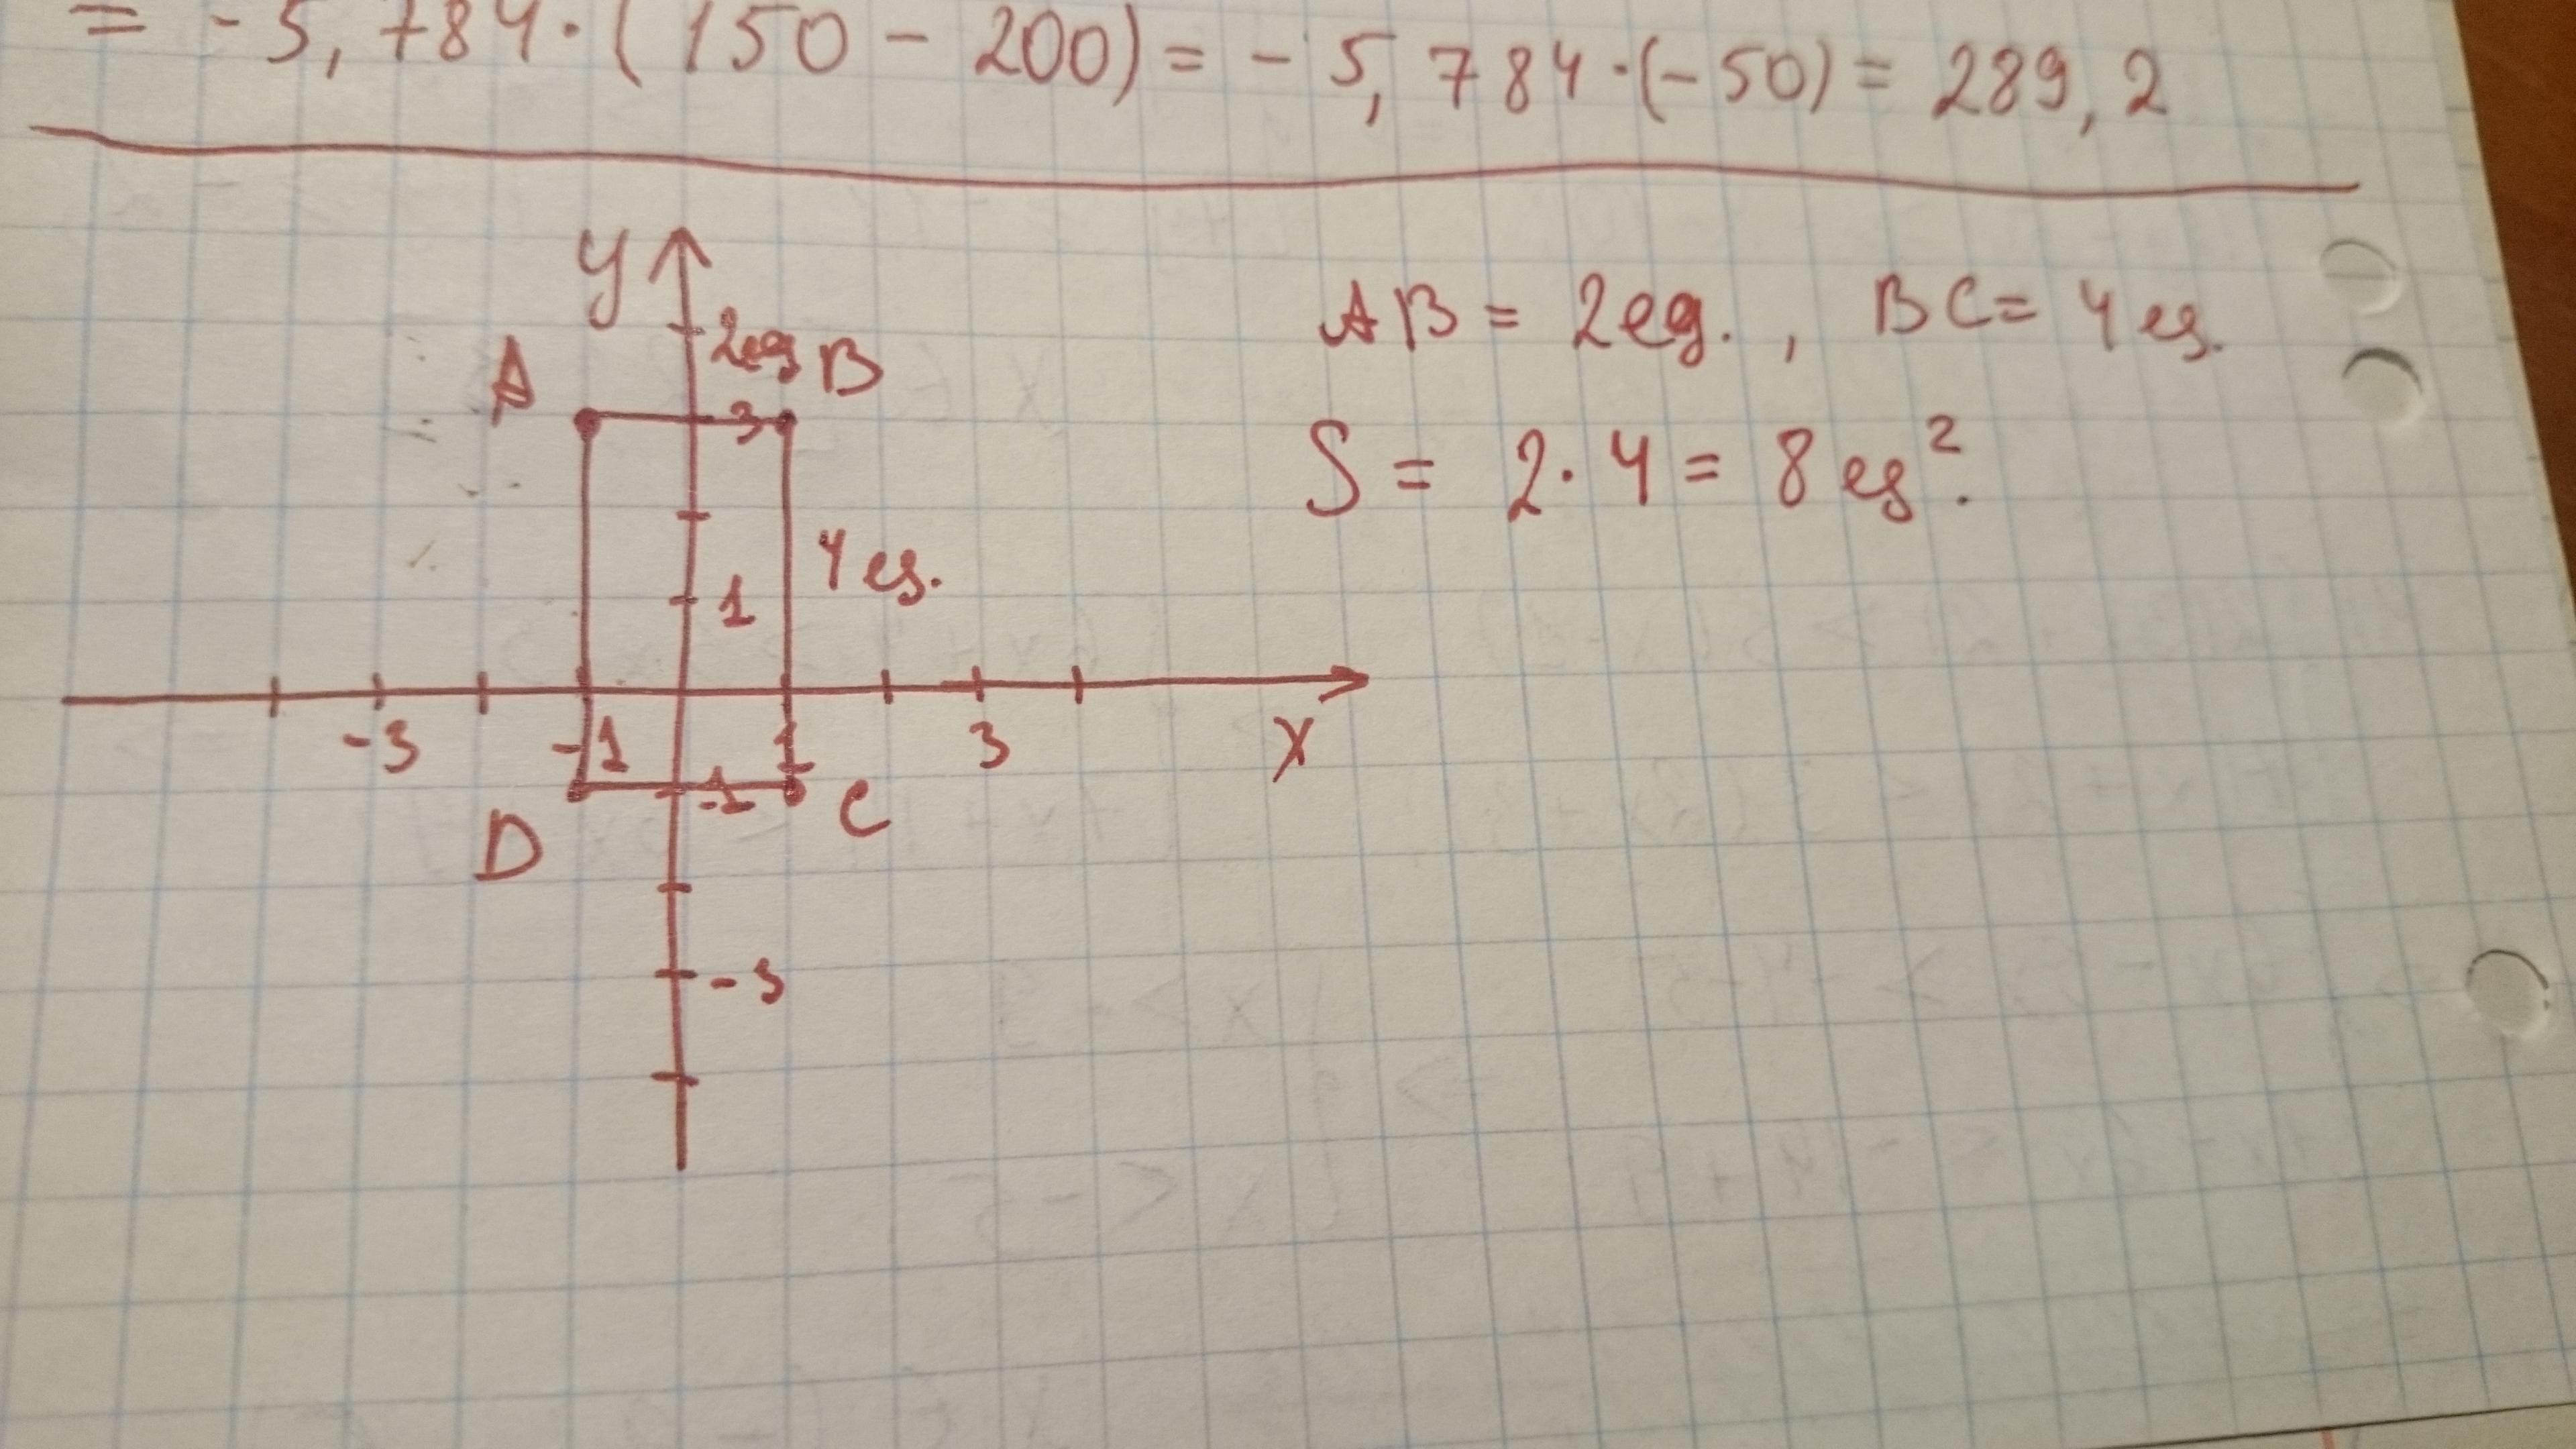 = -5,784·(150-200)=-5,784·(-50)=289,2
y
AB = 2ед., BC= 4ед.
2ед B
A
3
S = 2·4=8ед².
4ед.
1
-3 -1 1 3 x
-1
D C
-3